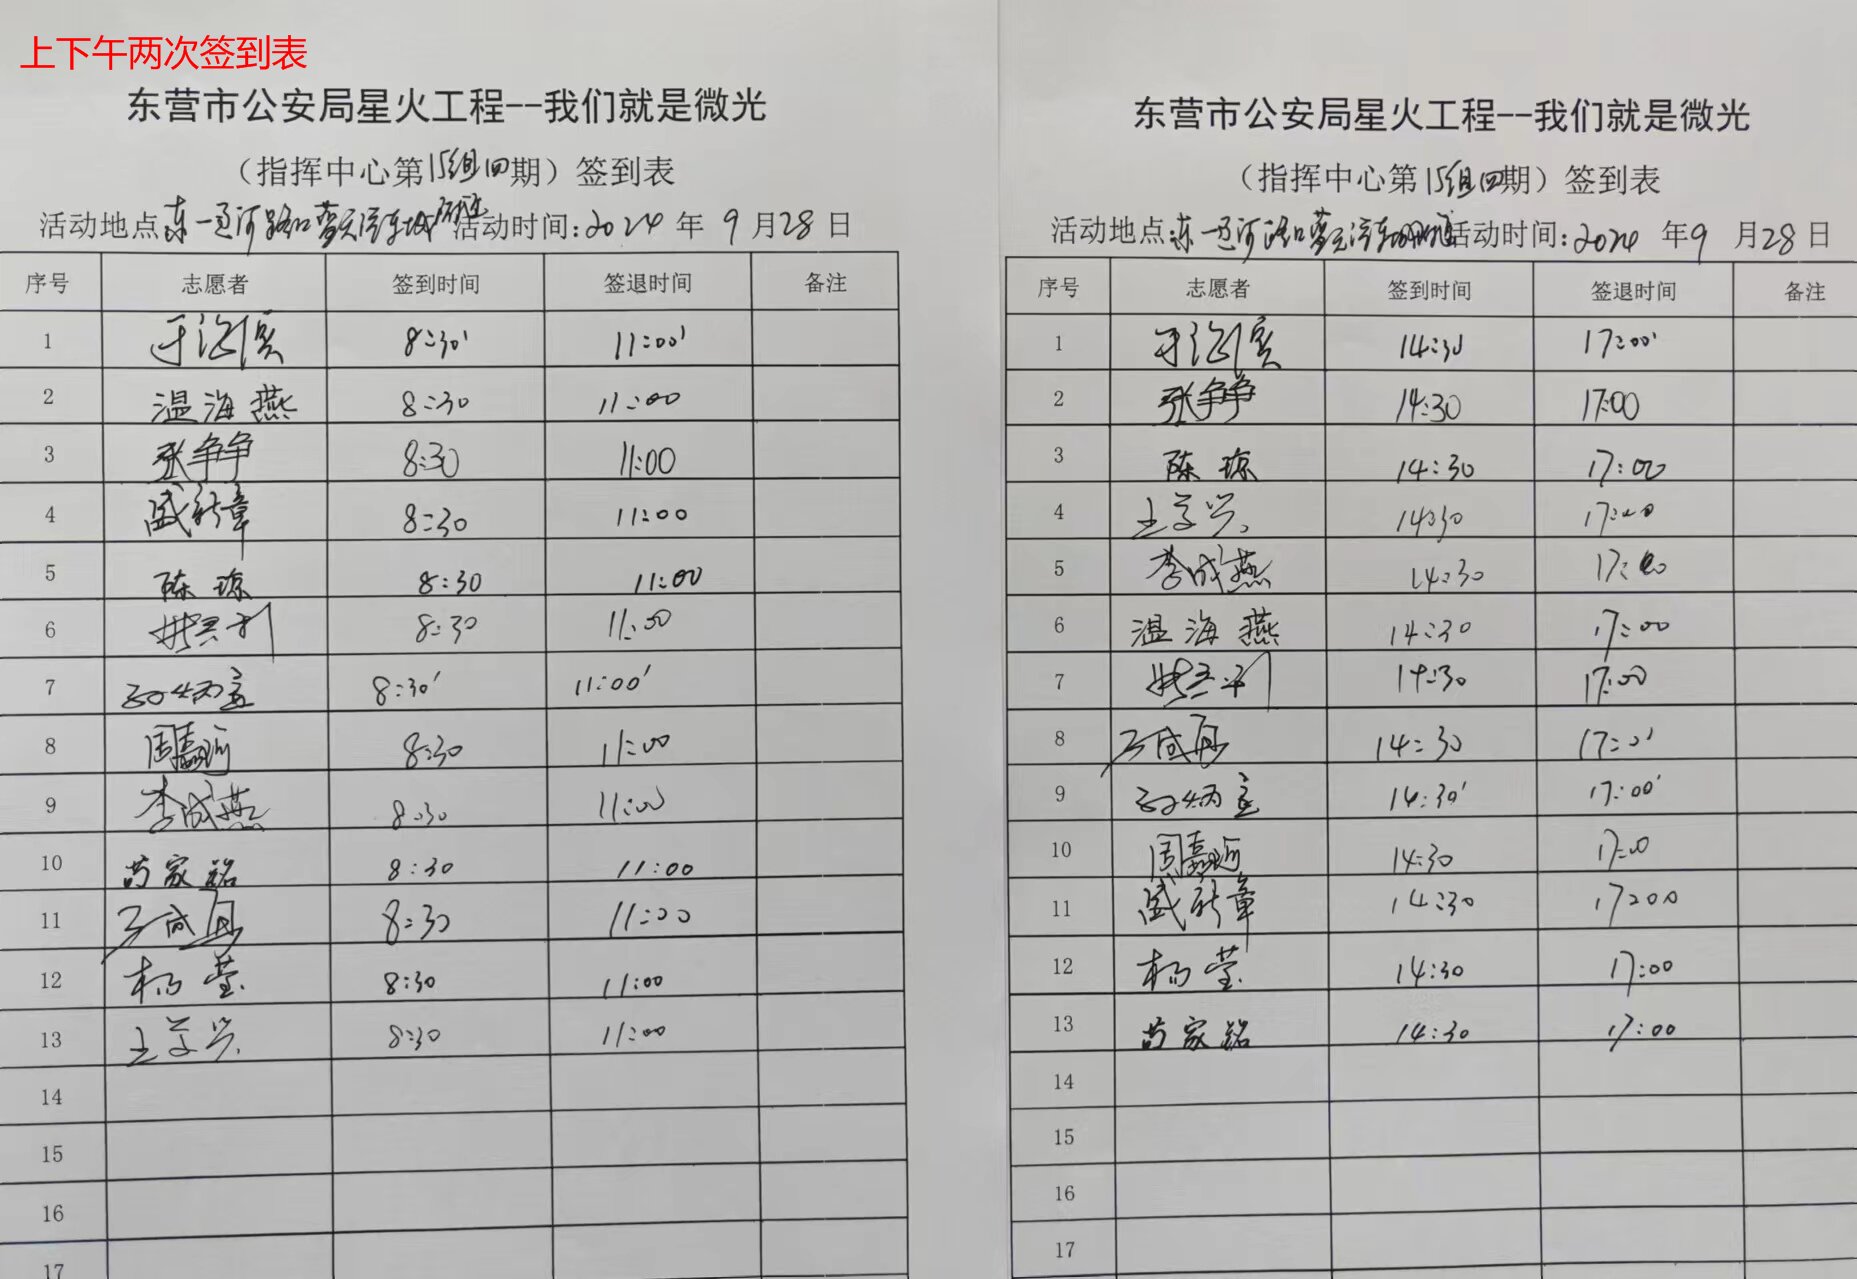 上下午两次签到表
东营市公安局星火工程--我们就是微光
（指挥中心第15组四期）签到表
活动地点 东一辽河路口 活动时间:2024年9月28日
序号 志愿者 签到时间 签退时间 备注
1 8:30' 11:00'
2 温海燕 8:30 11:00
3 张争争 8:30 11:00
4 盛新章 8:30 11:00
5 陈琼 8:30 11:00
6 8:30 11:00
7 8:30' 11:00'
8 周嘉珂 8:30 11:00
9 李成燕 8:30 11:00
10 苗家铭 8:30 11:00
11 8:30 11:00
12 杨莹 8:30 11:00
13 王学兴 8:30 11:00
14
15
16
17
东营市公安局星火工程--我们就是微光
（指挥中心第15组四期）签到表
活动地点:东一辽河路口 活动时间:2024年9月28日
序号 志愿者 签到时间 签退时间 备注
1 14:30 17:00'
2 张争争 14:30 17:00
3 陈琼 14:30 17:00
4 王学兴 14:30 17:00
5 李成燕 14:30 17:00
6 温海燕 14:30 17:00
7 14:30 17:00
8 14:30 17:00
9 14:30' 17:00'
10 周嘉珂 14:30 17:00
11 盛新章 14:30 17:00
12 杨莹 14:30 17:00
13 苗家铭 14:30 17:00
14
15
16
17